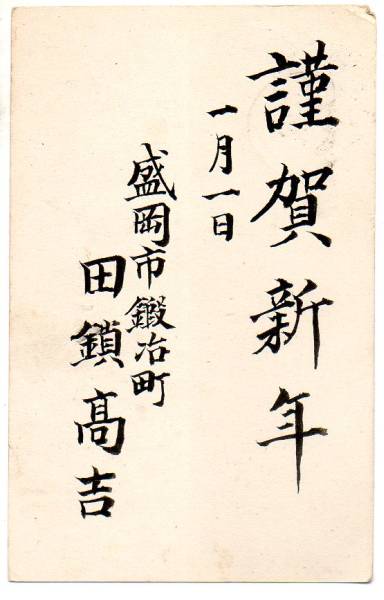 謹賀新年
一月一日
盛岡市鍛冶町
田鎖髙吉